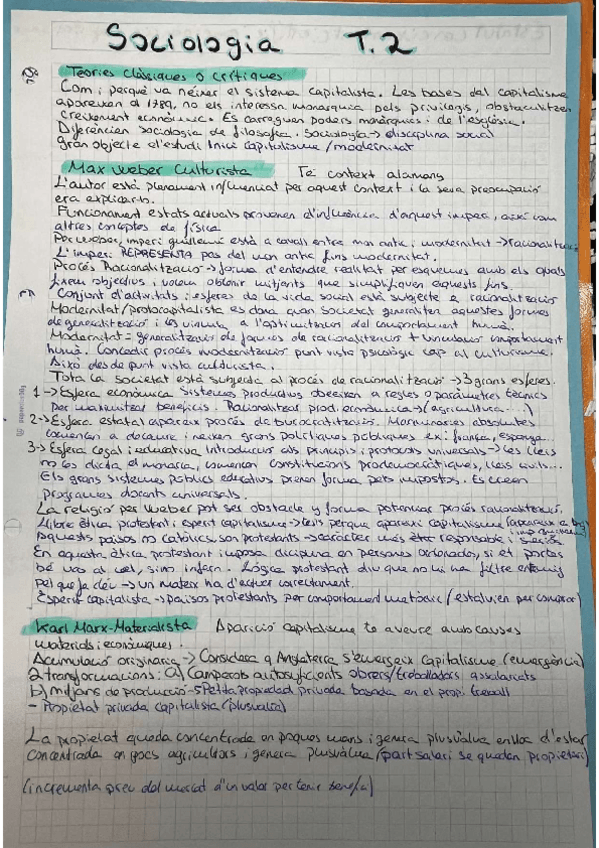 Sociologia T.2
Teories clàssiques o crítiques
Com i perquè va néixer el sistema capitalista. Les bases del capitalisme
apareixen al 1789, no els interessa monarquia pels privilegis, obstaculitzen
creixement econòmic. Es carreguen poders monàrquics i de l'església.
Diferencien sociologia de filosofia. Sociologia → disciplina social
gran objecte d'estudi Inici capitalisme / modernitat
Max Weber Culturista Té context alemany
L'autor està plenament influenciat per aquest context i la seva preocupació
era explicar-lo.
Funcionament estats actuals provenen d'influència d'aquest imperi, així com
altres conceptes de física
Per Weber, imperi està a cavall entre mon antic i modernitat → racionalització
L'imperi REPRESENTA pas del mon antic fins modernitat.
Procés Racionalització → forma d'entendre realitat per esquemes amb els quals
fixem objectius i volem obtenir mitjants que simplifiquen aquests fins.
Conjunt d'activitats i esferes de la vida social està subjecte a racionalització
Modernitat/protocapitalista es dona quan societat generalitzen aquestes formes
de generalització i es vincula a l'optimització del comportament humà.
Modernitat = generalització de formes de racionalització + vinculació comportament
humà. Concedir procés modernització punt vista psicològic cap al culturisme.
Això des de punt vista culturista.
Tota la societat està subjecta al procés de racionalització → 3 grans esferes.
1 → Esfera econòmica Sistemes productius obeeixen a regles o paràmetres tècnics
per maximitzar beneficis. Racionalitzar prod. econòmica → (agricultura...)
2 → Esfera estatal apareix procés de burocratització. Monarquies absolutes
comencen a decaure i neixen grans polítiques públiques ex: frança, espanya...
3 → Esfera legal i educativa Introducció als principis i protocols universals → les lleis
no les dicta el monarca, comencen constitucions prodemocràtiques, lleis civils...
Els grans sistemes públics educatius prenen forma pels impostos. Es creen
programes docents universals.
La religió per Weber pot ser obstacle y forma potenciar procés racionalització.
Llibre ètica protestant i esperit capitalisme → tesis perquè apareix capitalisme
Aquests països no catòlics, son protestants → caràcter més responsable i
En aquesta ètica protestant imposa disciplina en persones ordenades, si et portes
bé vas al cel, sino infern. Lògica protestant diu que no hi ha filtre
pel que fa déu → un mateix ha d'actuar correctament.
Esperit capitalista → països protestants per comportament metòdic / estalvien per comprar)
Karl Marx-Materialista Aparició capitalisme te a veure amb causes
materials i econòmiques.
Acumulació originaria → Considera q Anglaterra s'emergeix capitalisme (emergència)
2 transformacions: a) Camperols autosuficients obrers/treballadors assalariats
b) mitjans de producció → Petita propiedad privada basada en el propi treball
- Propietat privada capitalista (plusvalia)
La propietat queda concentrada en poques mans i genera plusvàlua en lloc d'estar
concentrada en pocs agricultors i genera plusvàlua (part salari se queden propietari)
(incrementa preu del mercat d'un valor per tenir benefici)